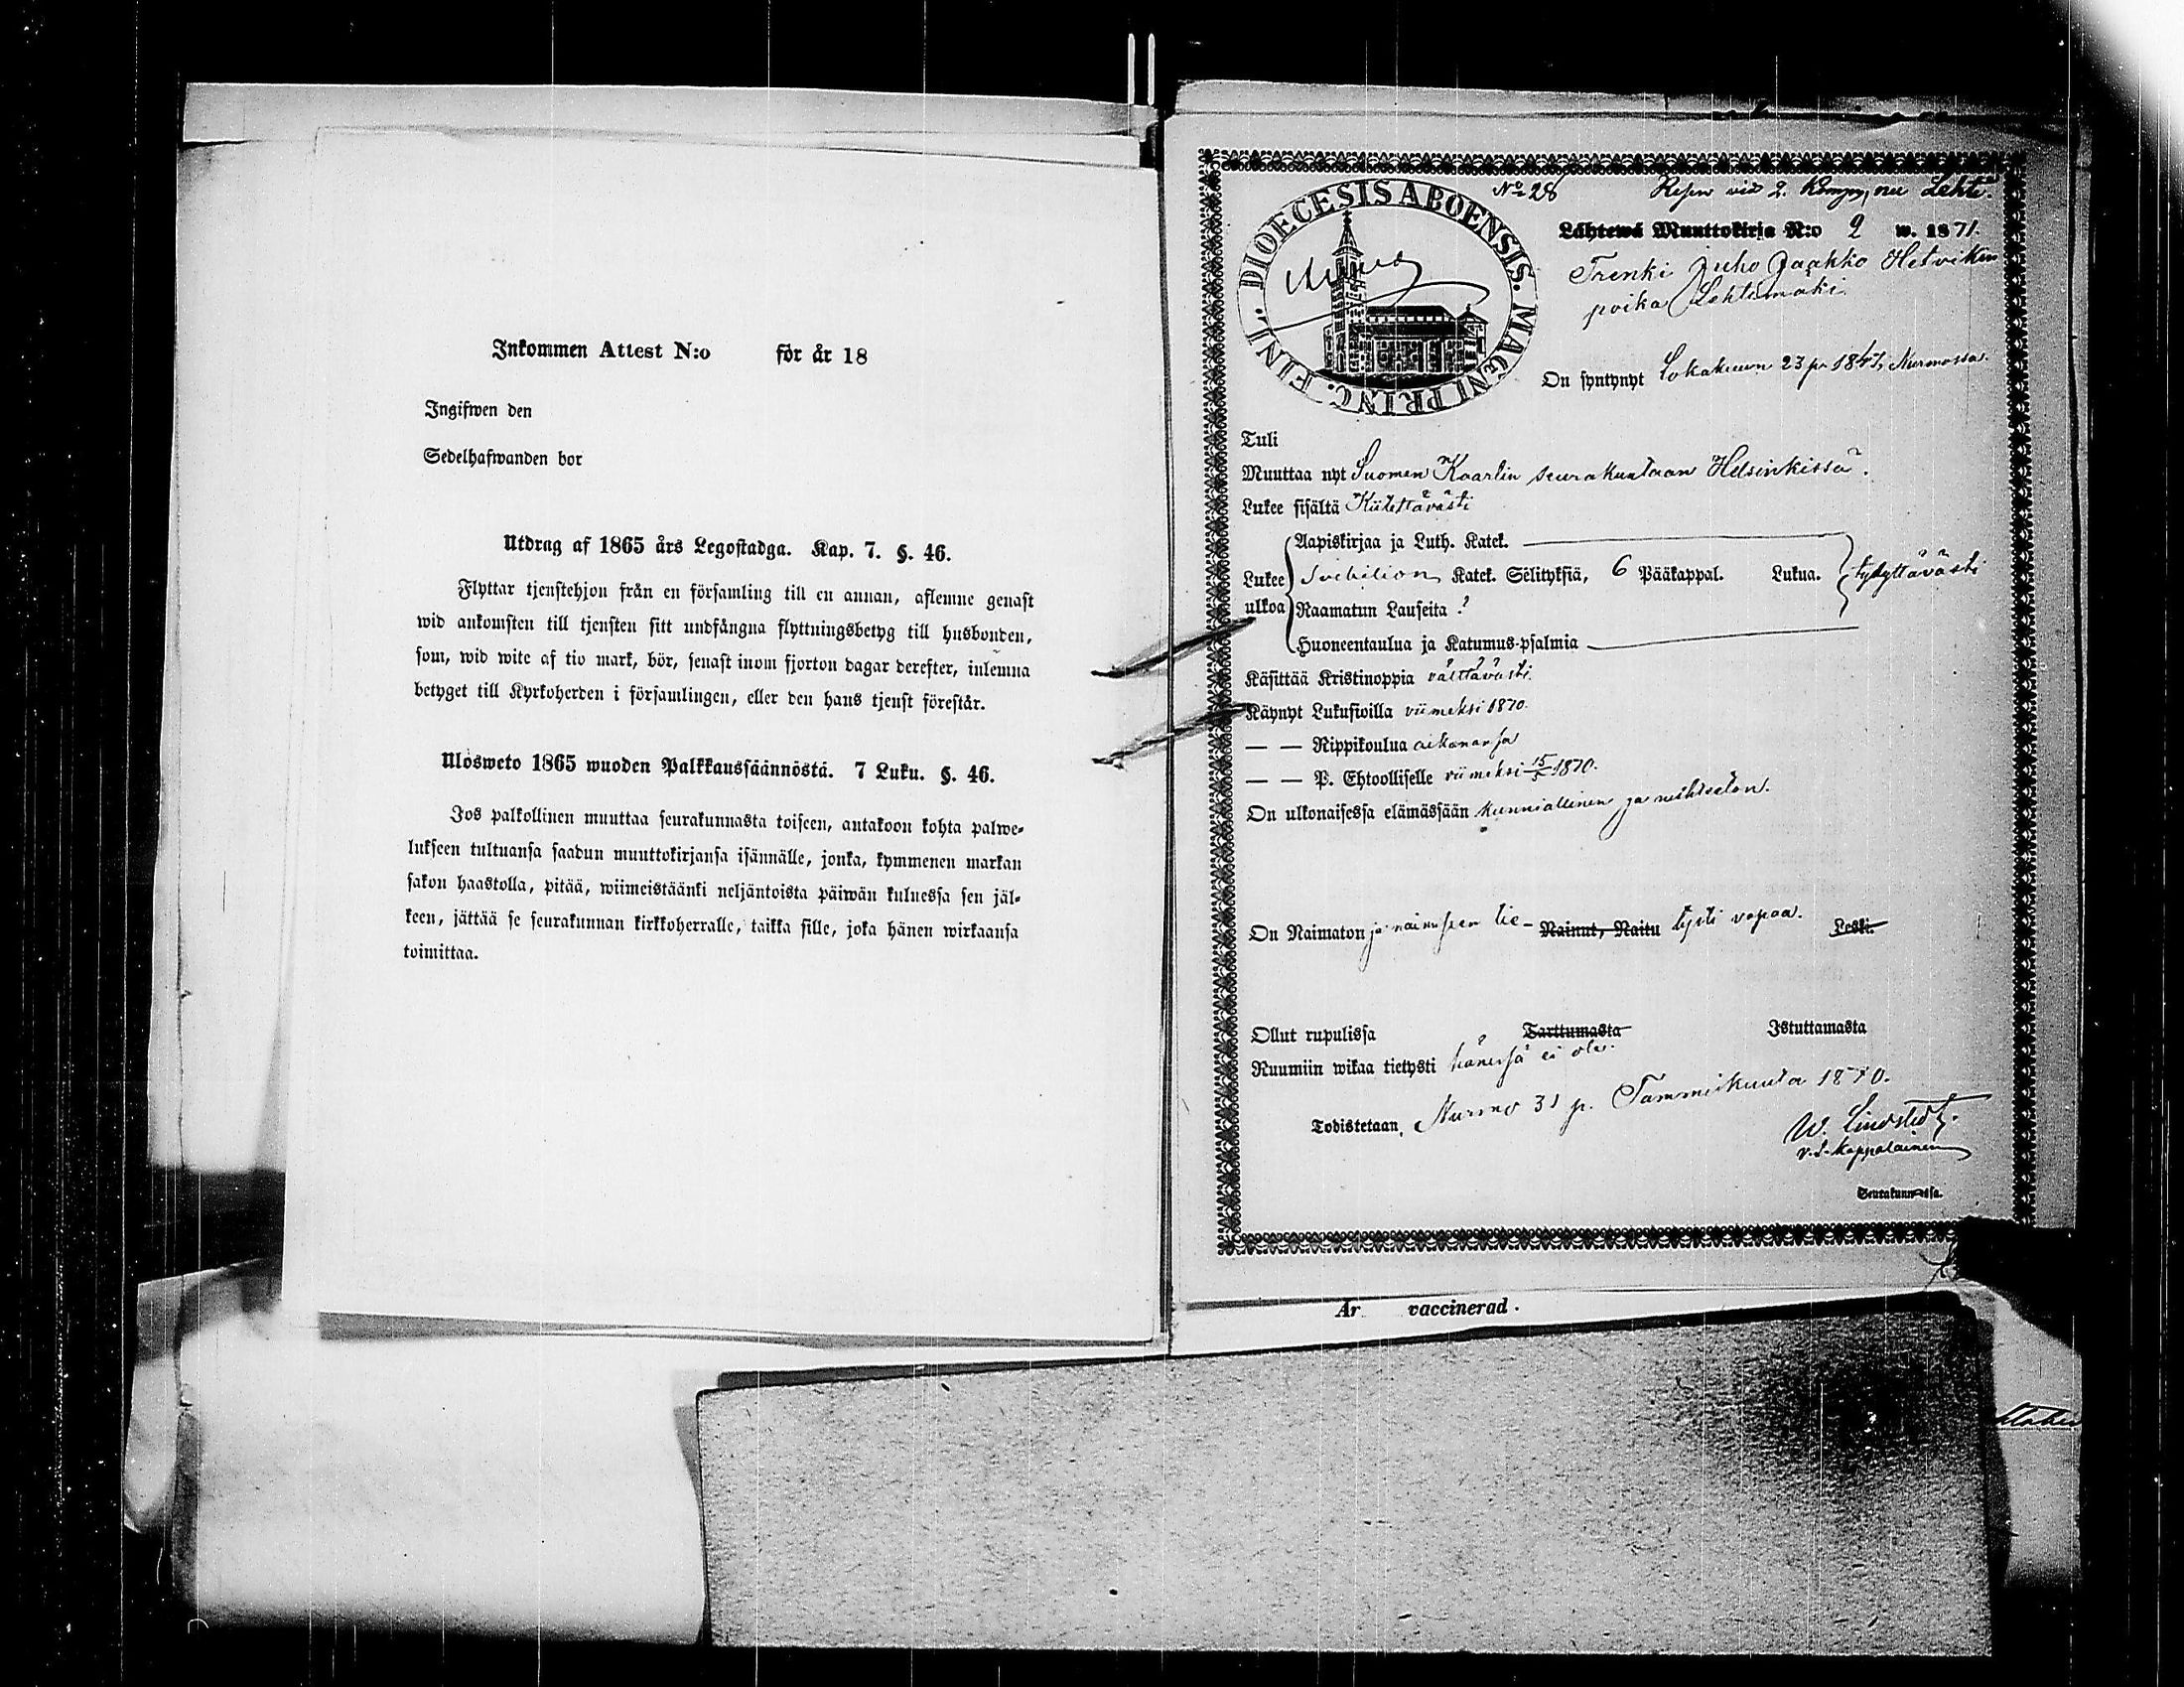 Inkommen Attest N:o för år 18
Ingifwen den
Sedelhafwanden bor
Utdrag af 1865 års Legostadga. Kap. 7. §. 46.
Flyttar tjenstehjon från en församling till en annan, aflemne genast
wid ankomsten till tjensten sitt undfångna flyttningsbetyg till husbonden,
som, wid wite af tio mark, bör, senast inom fjorton dagar derefter, inlemna
betyget till Kyrkoherden i församlingen, eller den hans tjenst förestår.
Ulosweto 1865 wuoden Palkkaussäännöstä. 7 Luku. §. 46.
Jos palkollinen muuttaa seurakunnasta toiseen, antakoon kohta palwe-
lukseen tultuansa saadun muuttokirjansa isännälle, jonka, kymmenen markan
sakon haastolla, pitää, wiimeistäänki neljäntoista päiwän kuluessa sen jäl-
keen, jättää se seurakunnan kirkkoherralle, taikka sille, joka hänen wirkaansa
toimittaa.
No 28
DIOECESIS ABOENSIS. MAGNI PRINC. FINL.
Lähtewä Muuttokirja N:o 2 w. 1871.
Trenki Juho Jaakko Hetvikin
poika Lehtimäki
On syntynyt Lokakuun 23 p. 1847, Nurmossa.
Tuli
Muuttaa nyt Suomen Kaartin seurakuntaan Helsinkissä.
Lukee sisältä Kiitettävästi
Aapiskirjaa ja Luth. Katek.
Lukee Svebilion Katek. Selityksiä, 6 Pääkappal. Lukua. tydyttävästi
ulkoa Raamatun Lauseita ?
Huoneentaulua ja Katumus-psalmia
Käsittää Kristinoppia välttävästi.
Käynyt Lukusioilla viimeksi 1870.
— — Rippikoulua aikanansa
— — P. Ehtoolliselle viimeksi 15/5 1870.
On ulkonaisessa elämässään kunniallinen ja nuhteeton.
On Naimaton ja naimiseen tie- Nainut, Naitu tysti vapaa. Leski.
Ollut rupulissa Tarttumasta Istuttamasta
Ruumiin wikaa tietysti hänessä ei ole.
Todistetaan, Nurmo 31 p. Tammikuuta 1870.
W. Lindstedt.
v.s. Kappalainen
Seurakunnassa.
Ar vaccinerad.